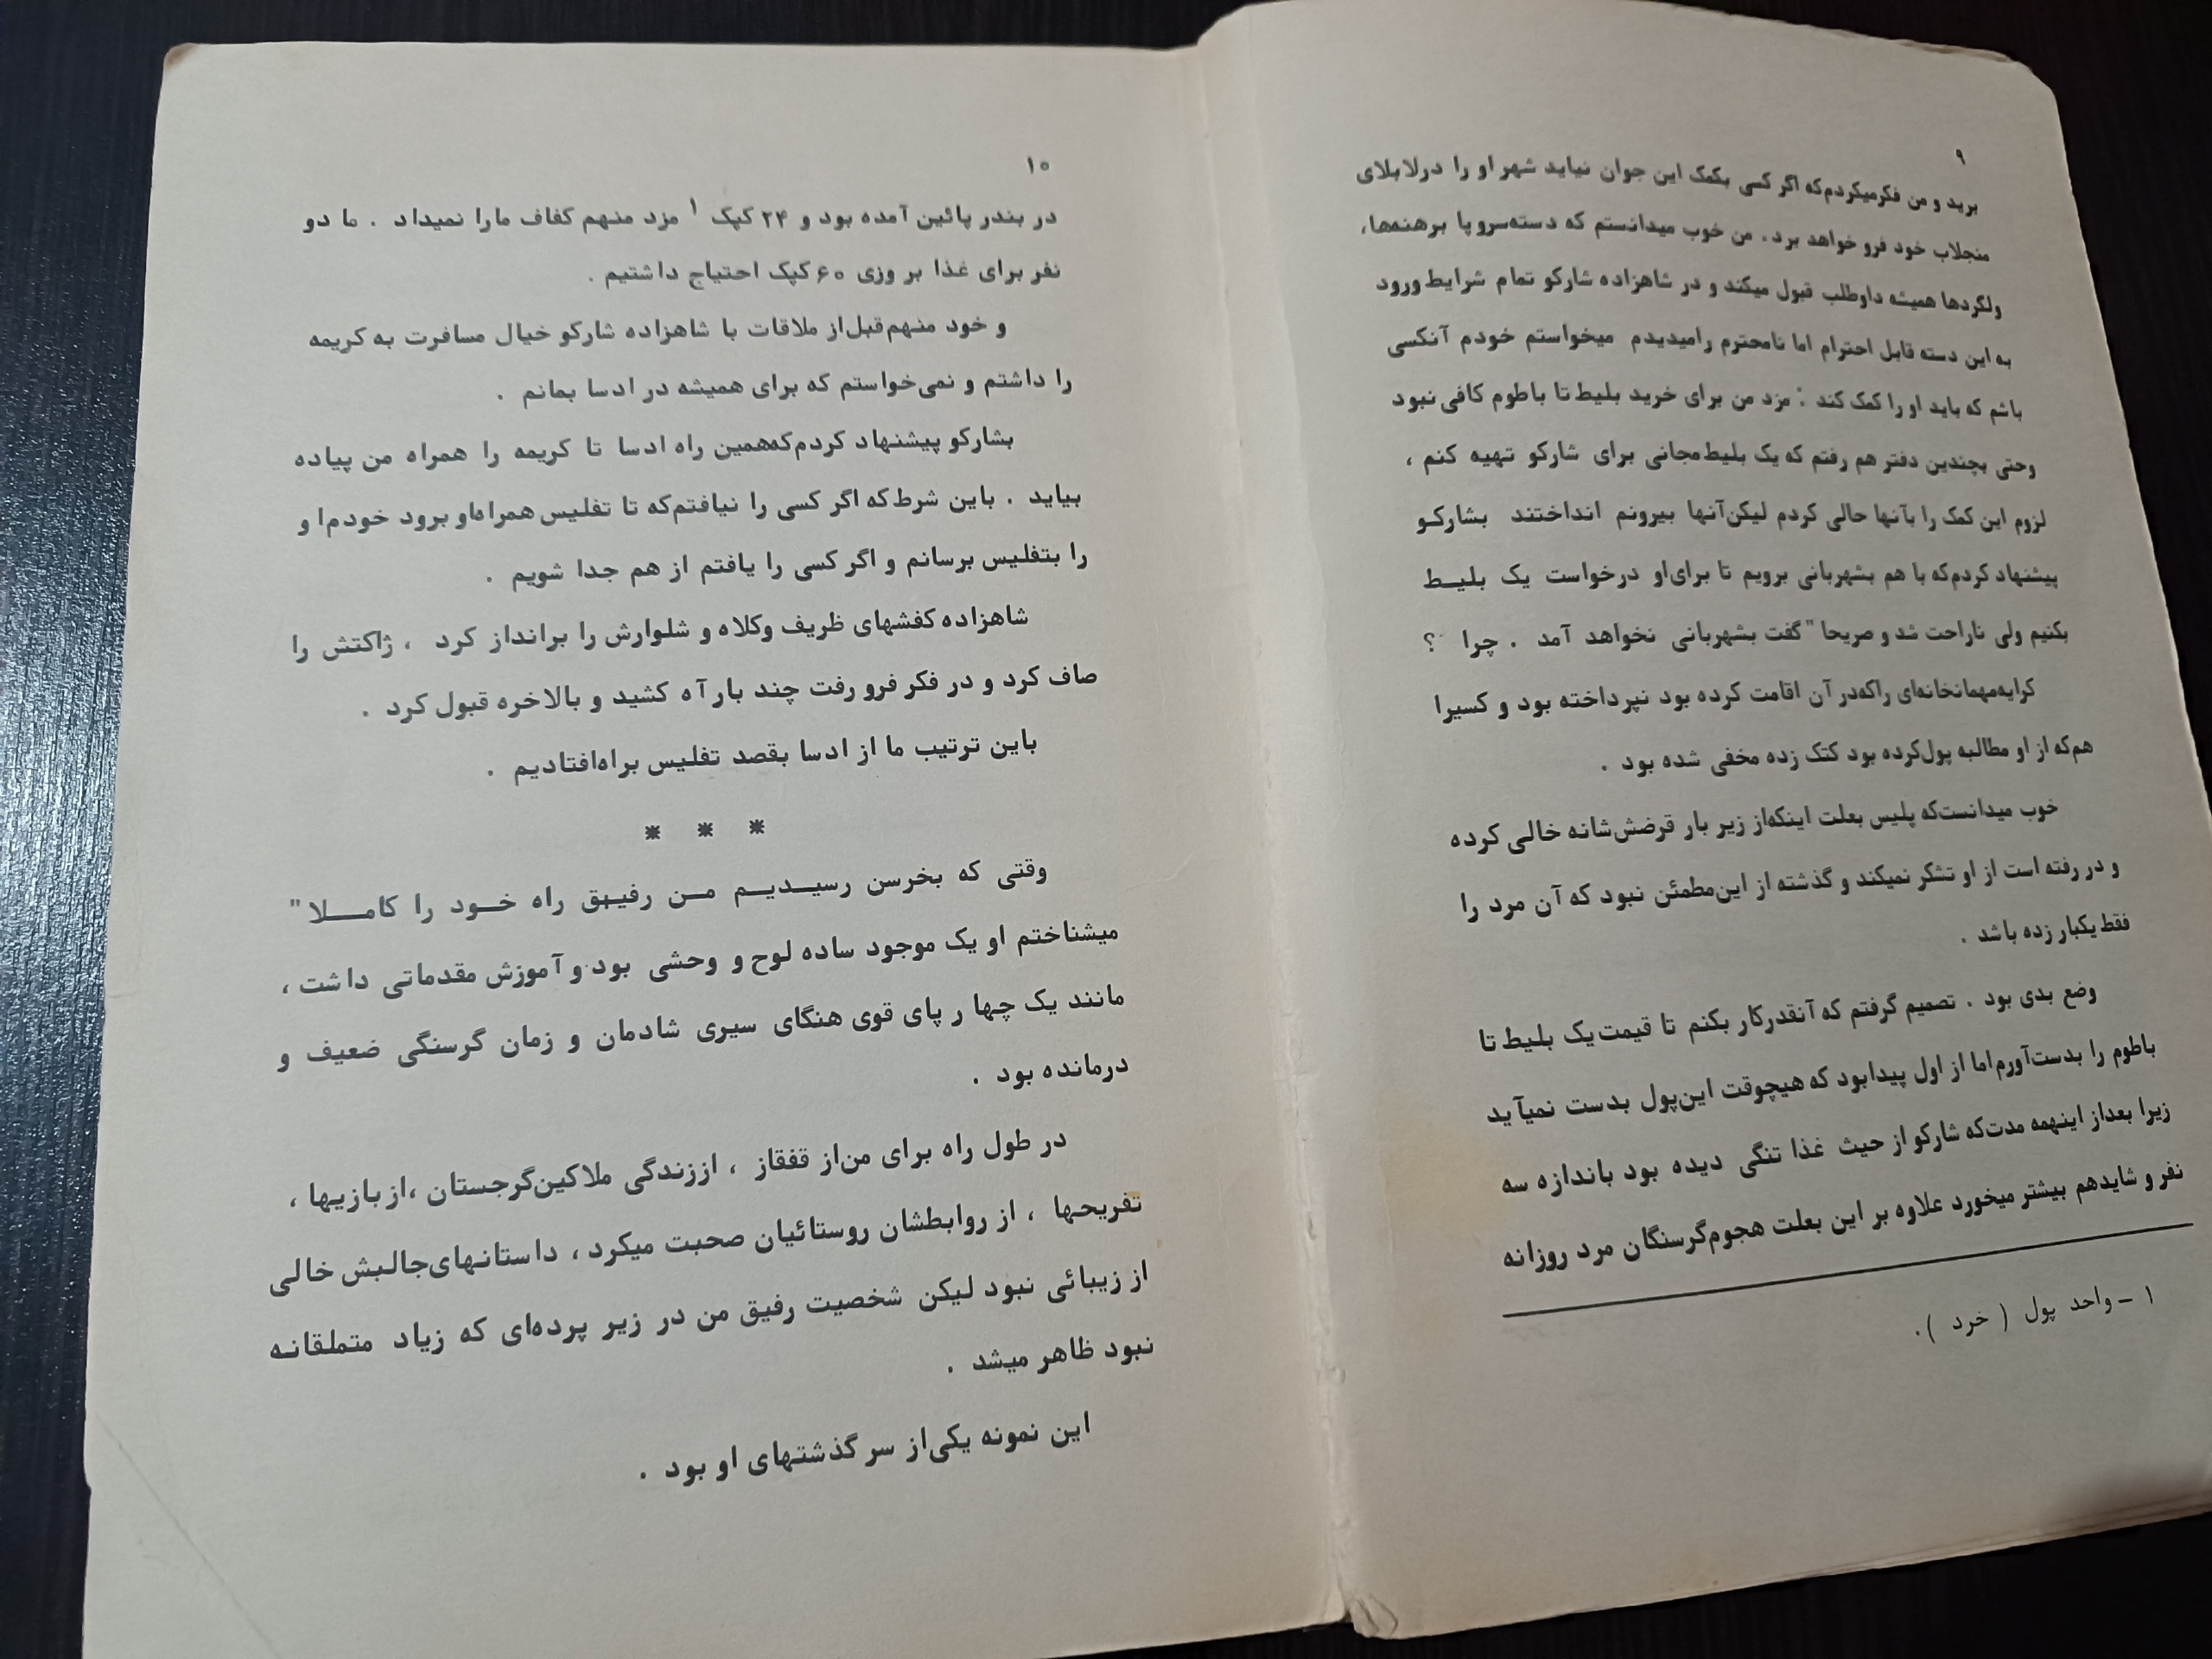 ۹
برید و من فکرمیکردم‌که اگر کسی بکمک این جوان نیاید شهر او را درلابلای
منجلاب خود فرو خواهد برد. من خوب میدانستم که دسته‌سروپا برهنه‌ها،
ولگردها همیشه داوطلب قبول میکند و در شاهزاده شارکو تمام شرایط ورود
به این دسته قابل احترام اما نامحترم رامیدیدم میخواستم خودم آنکسی
باشم که باید او را کمک کند : مزد من برای خرید بلیط تا باطوم کافی نبود
وحتی بچندین دفتر هم رفتم که یک بلیط مجانی برای شارکو تهیه کنم ،
لزوم این کمک را بآنها حالی کردم لیکن‌آنها بیرونم انداختند بشارکو
پیشنهاد کردم‌که با هم بشهربانی برویم تا برای‌او درخواست یک بلیط
بکنیم ولی ناراحت شد و صریحا" گفت بشهربانی نخواهد آمد . چرا ؟
کرایه‌مهمانخانه‌ای راکه‌در آن اقامت کرده بود نپرداخته بود و کسیرا
هم‌که از او مطالبه پول‌کرده بود کتک زده مخفی شده بود .
خوب میدانست‌که پلیس بعلت اینکه‌از زیر بار قرضش‌شانه خالی کرده
و در رفته است از او تشکر نمیکند و گذشته از این‌مطمئن نبود که آن مرد را
فقط یکبار زده باشد .
وضع بدی بود . تصمیم گرفتم که آنقدرکار بکنم تا قیمت یک بلیط تا
باطوم را بدست‌آورم اما از اول پیدابود که هیچوقت این‌پول بدست نمیآید
زیرا بعداز اینهمه مدت‌که شارکو از حیث غذا تنگی دیده بود باندازه سه
نفر و شایدهم بیشتر میخورد علاوه بر این بعلت هجوم‌گرسنگان مرد روزانه
۱ - واحد پول ( خرد ).
۱۰
در بندر پائین آمده بود و ۲۴ کپک ۱ مزد منهم کفاف مارا نمیداد . ما دو
نفر برای غذا بر وزی ۶۰ کپک احتیاج داشتیم .
و خود منهم‌قبل‌از ملاقات با شاهزاده شارکو خیال مسافرت به کریمه
را داشتم و نمی‌خواستم که برای همیشه در ادسا بمانم .
بشارکو پیشنهاد کردم‌که‌همین راه ادسا تا کریمه را همراه من پیاده
بیاید . باین شرط‌که اگر کسی را نیافتم‌که تا تفلیس همراه‌او برود خودم‌ا و
را بتفلیس برسانم و اگر کسی را یافتم از هم جدا شویم .
شاهزاده کفشهای ظریف وکلاه و شلوارش را برانداز کرد ، ژاکتش را
صاف کرد و در فکر فرو رفت چند بار آه کشید و بالاخره قبول کرد .
باین ترتیب ما از ادسا بقصد تفلیس براه‌افتادیم .
* * *
وقتی که بخرسن رسیدیم من رفیق راه خود را کاملا"
میشناختم او یک موجود ساده لوح و وحشی بود و آموزش مقدماتی داشت ،
مانند یک چها ر پای قوی هنگای سیری شادمان و زمان گرسنگی ضعیف و
درمانده بود .
در طول راه برای من‌از قفقاز ، اززندگی ملاکین‌گرجستان ،ازبازیها ،
تفریحها ، از روابطشان روستائیان صحبت میکرد ، داستانهای‌جالبش خالی
از زیبائی نبود لیکن شخصیت رفیق من در زیر پرده‌ای که زیاد متملقانه
نبود ظاهر میشد .
این نمونه یکی‌از سر گذشتهای او بود .